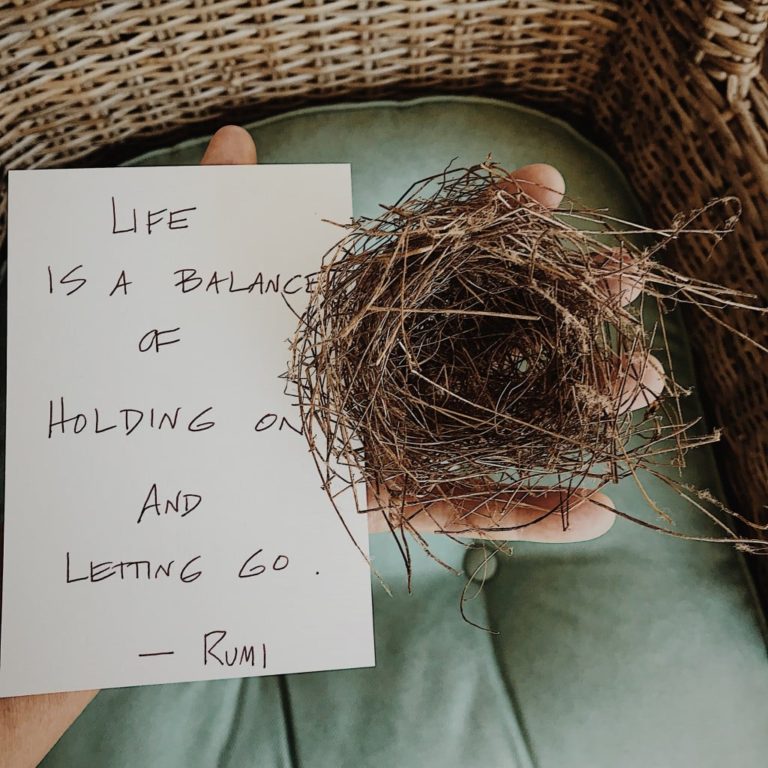 LIFE
IS A BALANCE
OF
HOLDING ON
AND
LETTING GO.
— RUMI